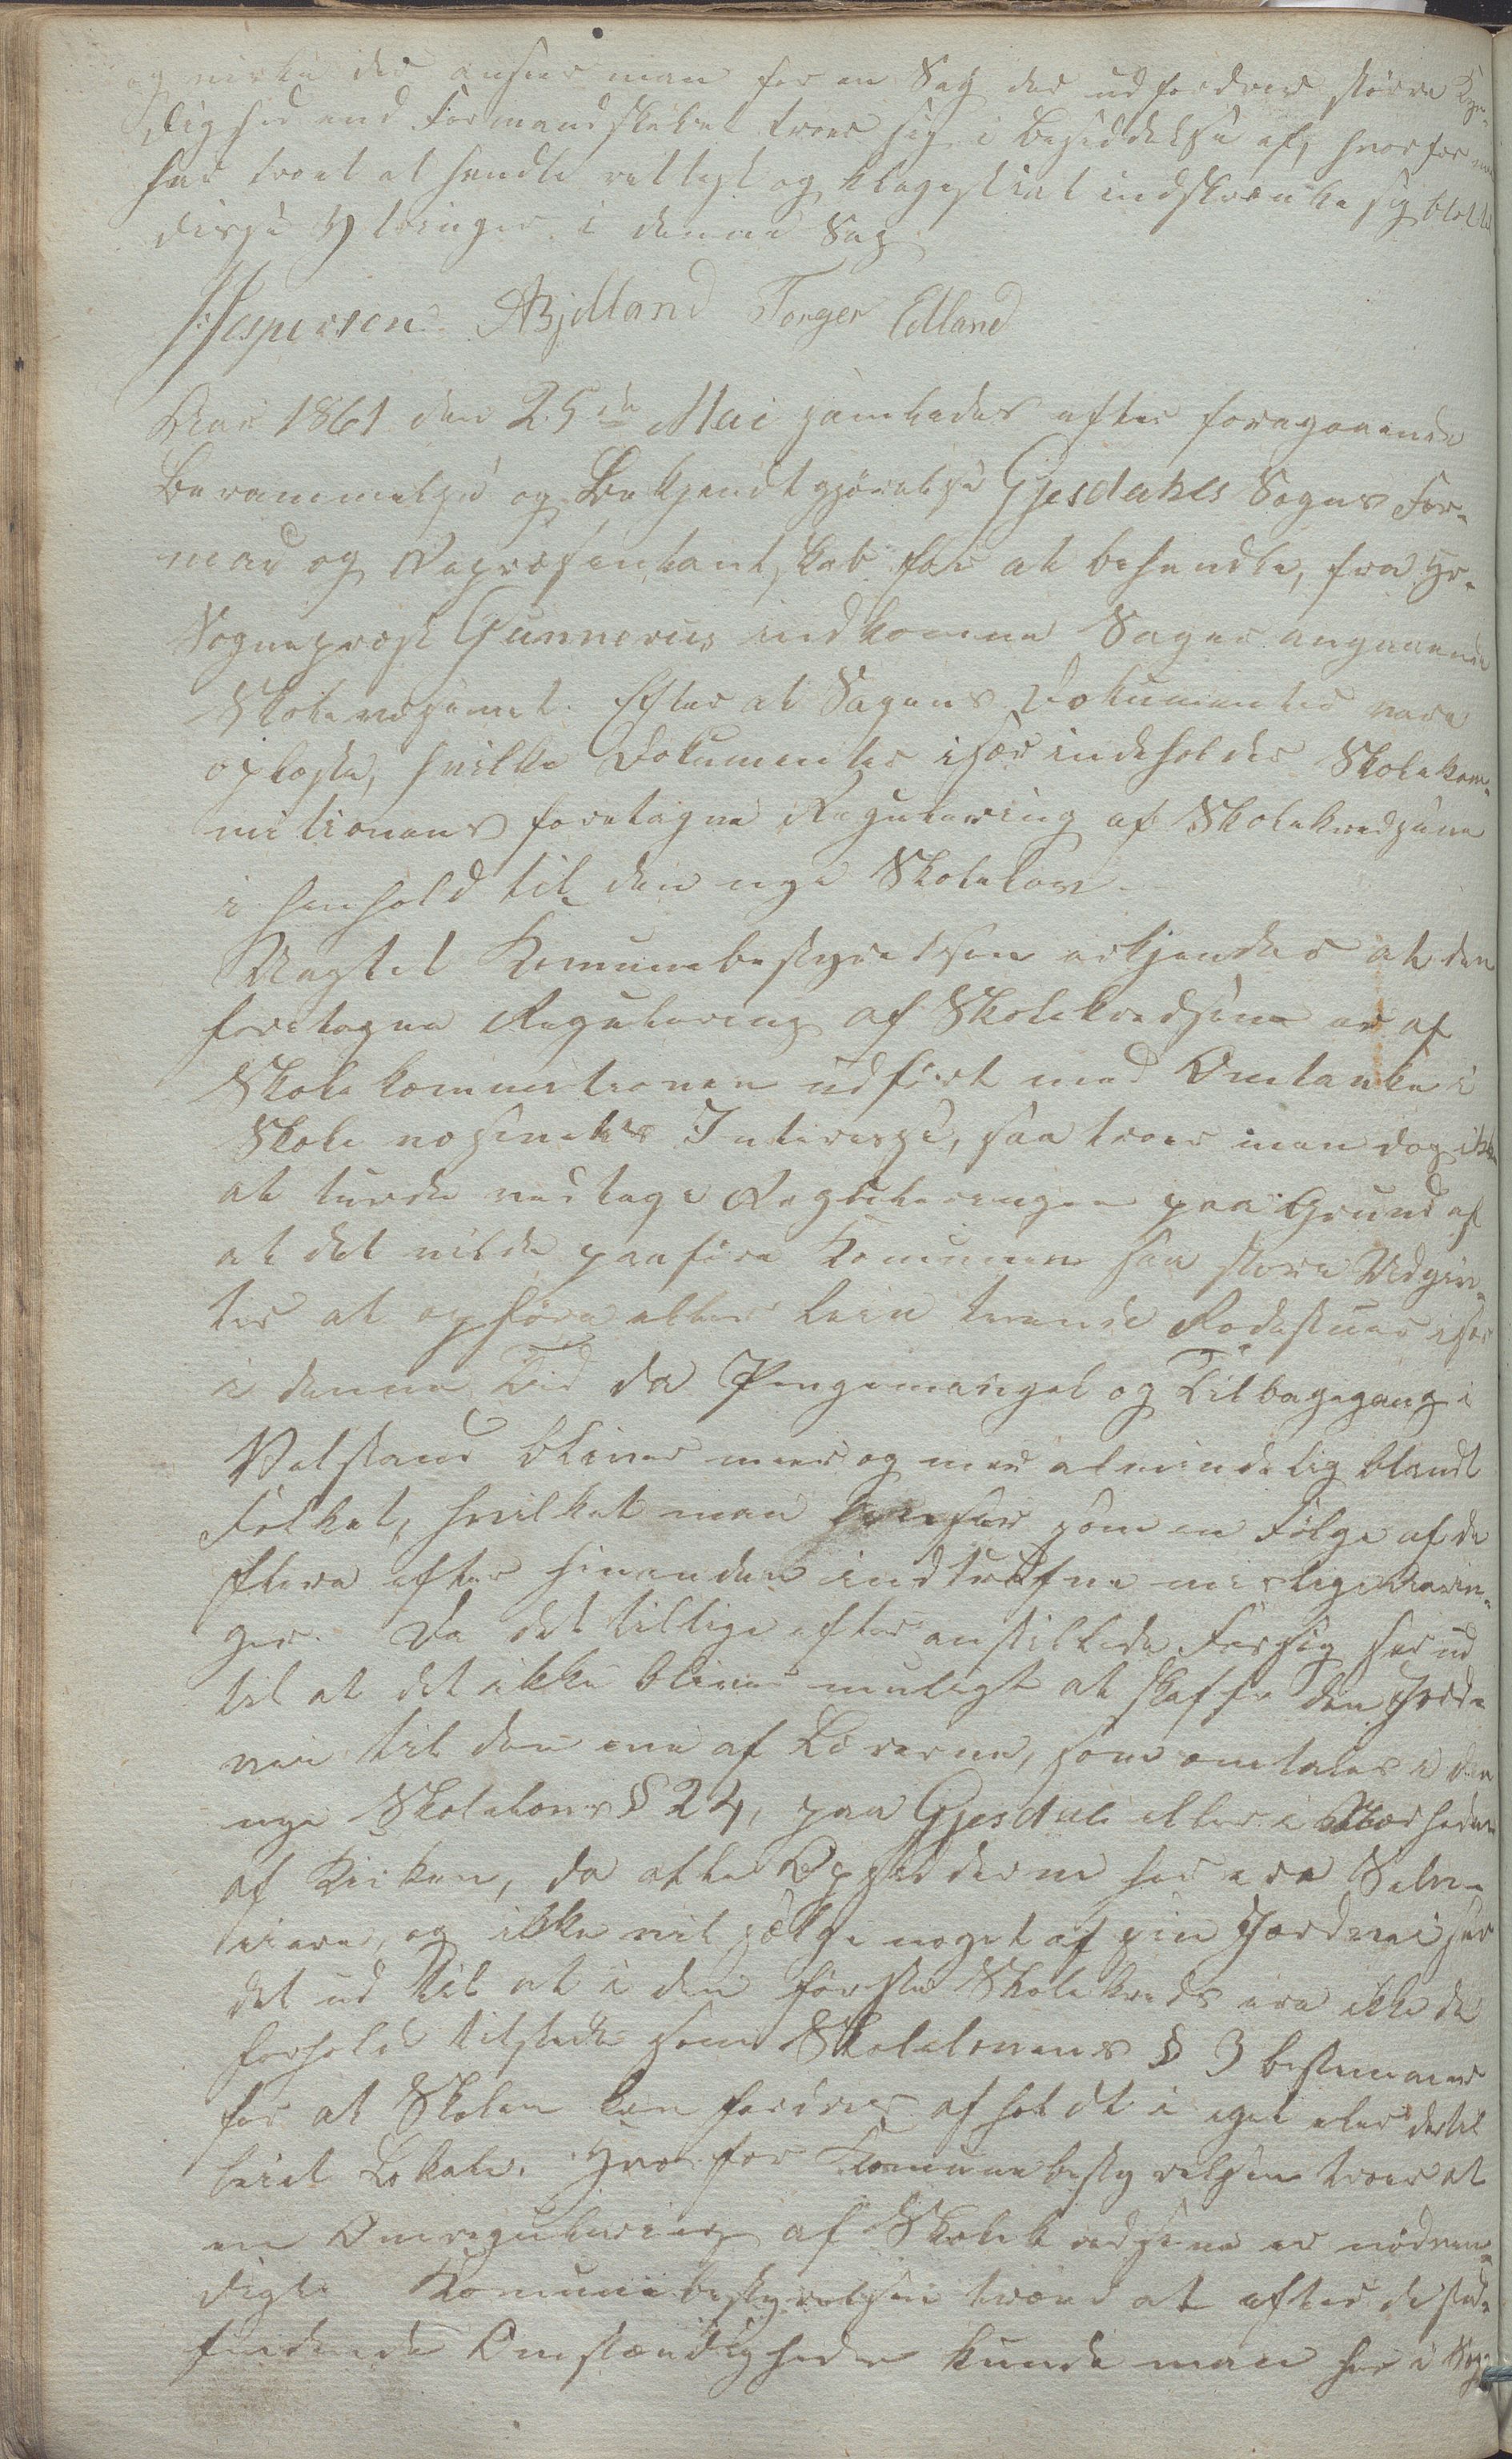 og virke der ansees man for en Sag der udfordrer større Kyn-
dighed end Formandskabet troer sig i Besiddelse af, hvorfor man
har troet at handle rettest og klogest i at indskrænke sig blot til
disse Ytringer i denne Sag.
Jespersen ABjelland Torger Edland
Aar 1861 den 25de Mai samledes efter foregaaende
Berammelse og Bekjendtgjørelse Gjesdahls Sogns For-
mand og Repræsentantskab for at behandle, fra Hr.
Sogneprest Gunnerius indkomne Sager angaaende
Skolevæsenet. Efter at Sagens Dokumenter vare
oplæste, hvilke Dokumenter især indeholder Skolekom-
mitionens foretagne Regulering af Skolekredsene
i henhold til den nye Skolelov.
Uagtet Komunebestyrelsen erkjender at den
foretagne Regulering af Skolekredsene er af
Skolekommitionen udført med Omtanke i
Skolevæsenets Interesse, saa troer man dog ikke
at turde vedtage Reguleringen paa Grund af
at det vilde paaføre Komunen saa store Udgif-
ter at opføre eller leie trende Rodestuer især
i denne Tid da Pengemangel og Tilbagegang i
Velstand bliver meer og meer almindelig blandt
Folket, hvilket man anseer som en Følge af de
flere efter hinanden indtrufne mislige Aarin-
ger. Da det tillige efter anstillede Forsøg ser ud
til at det ikke bliver muligt at skaffe den Jord-
vei til den ene af Lærerne, som omtales i den
nye Skolelovs § 24, paa Gjesdal eller i Nærheden
af Kirken, da alle Opsidderne her ere Selv-
eiere, og ikke vil sælge noget af sin Jordvei ser
det ud til at i den første Skolekreds ere ikke de
forhold tilstede som Skolelovens § 3 bestemmer
for at Skolen kan fordres afholdt i eget eller dertil
leiet Lokale. Hvorfor Komunebestyrelsen troer at
en Omregulering af Skolekredsene er nødven-
digt. Komunebestyrelsen troer at efter de sted-
findende Omstændigheder kunde man her i Sog-